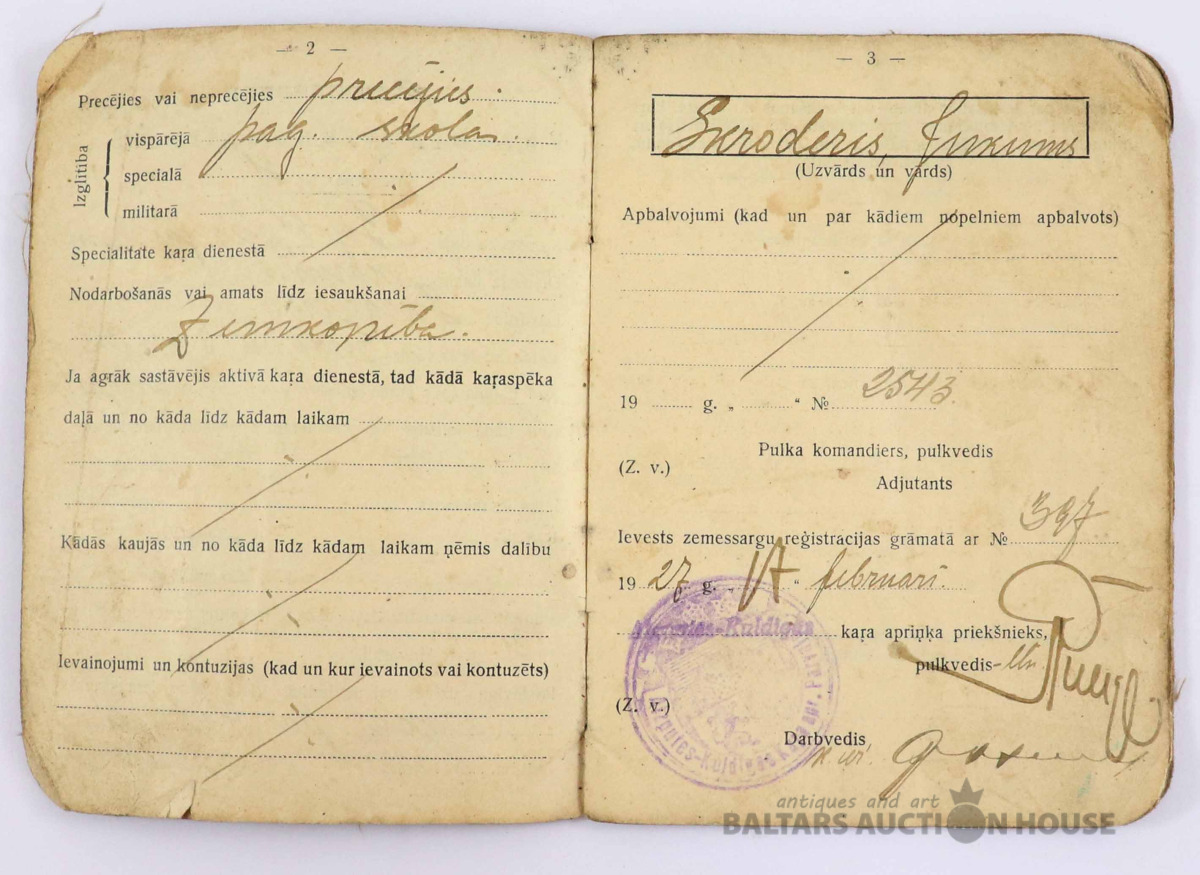 — 2 —
Precējies vai neprecējies precējies.
Izglītība
vispārējā pag. skola.
specialā
militarā
Specialitate kaŗa dienestā
Nodarbošanās vai amats līdz iesaukšanai
Zemkopība.
Ja agrāk sastāvējis aktivā kaŗa dienestā, tad kādā kaŗaspēka
daļā un no kāda līdz kādam laikam
Kādās kaujās un no kāda līdz kādam laikam ņēmis dalību
Ievainojumi un kontuzijas (kad un kur ievainots vai kontuzēts)
— 3 —
Skroderis,
(Uzvārds un vārds)
Apbalvojumi (kad un par kādiem nopelniem apbalvots)
19 g. „ “ № 2543.
Pulka komandiers, pulkvedis
(Z. v.)
Adjutants
Ievests zemessargu reģistracijas grāmatā ar № 397
19 27 g. 17 “ februarī.
Aizputes-Kuldīgas kaŗa apriņķa priekšnieks,
pulkvedis-ltn.
(Z. v.)
Darbvedis
Aizputes-Kuldīgas
antiques and art
BALTARS AUCTION HOUSE